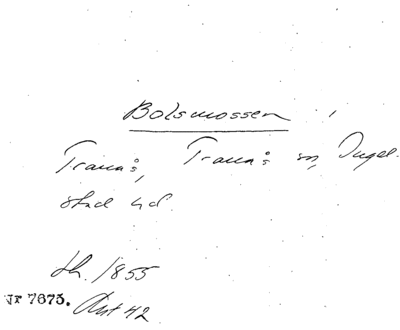 Bolsmossen
Tranås, Tranås sn, Ingel.
stad hd.
Lh. 1855
Nr 7675. Akt 42